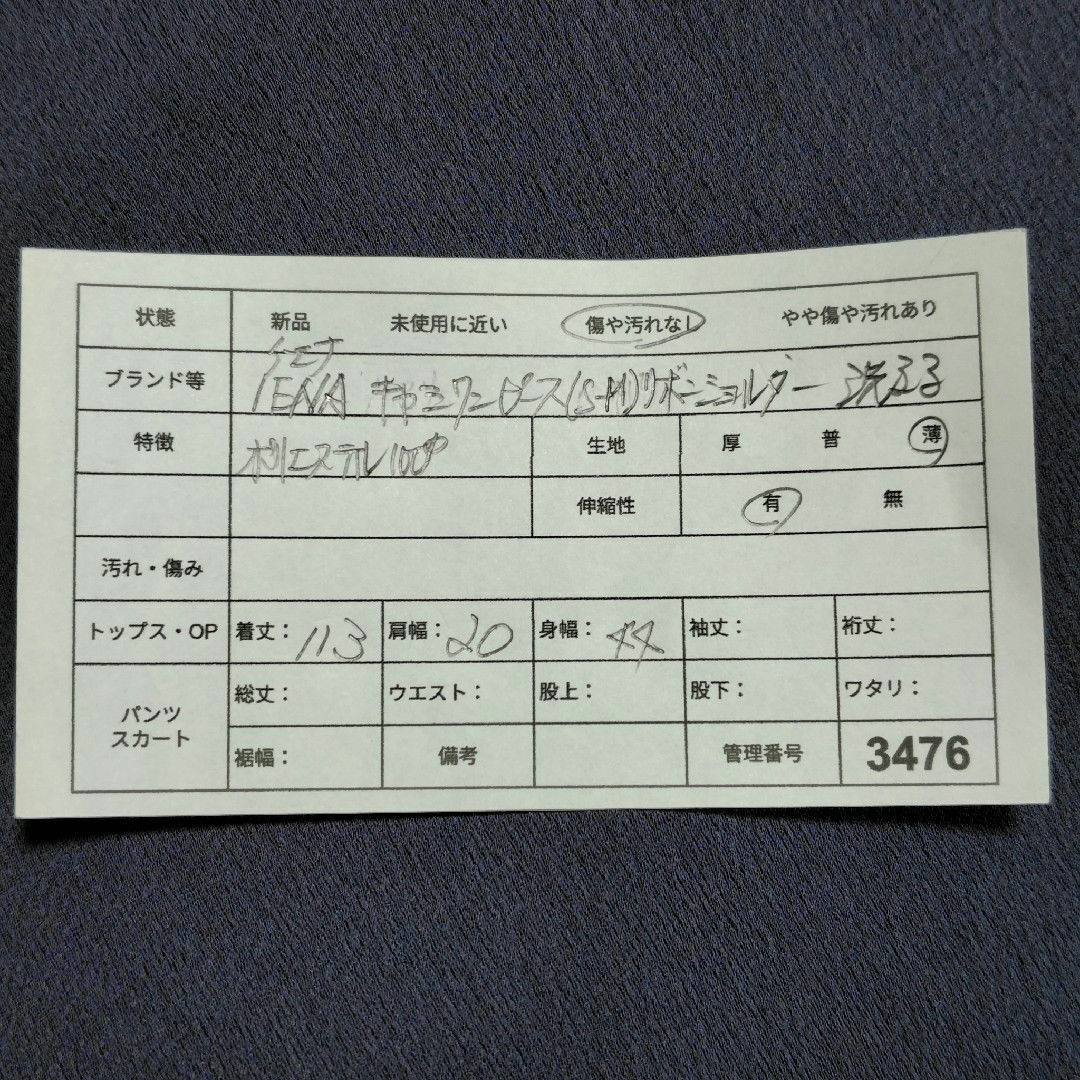 状態 新品 未使用に近い 傷や汚れなし やや傷や汚れあり
イエナ
ブランド等 IENA キャミワンピース(S-M)リボンショルダー 洗える
特徴 ポリエステル100% 生地 厚 普 薄
伸縮性 有 無
汚れ・傷み
トップス・OP 着丈: 113 肩幅: 20 身幅: 44 袖丈: 裄丈:
パンツ スカート 総丈: ウエスト: 股上: 股下: ワタリ:
裾幅: 備考 管理番号 3476